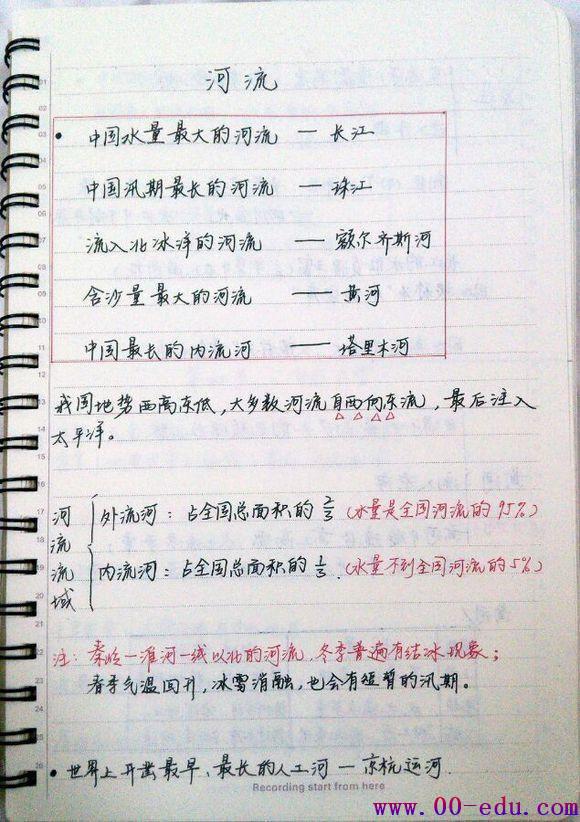 河流
• 中国水量最大的河流 — 长江
中国汛期最长的河流 — 珠江
流入北冰洋的河流 — 额尔齐斯河
含沙量最大的河流 — 黄河
中国最长的内流河 — 塔里木河
我国地势西高东低,大多数河流自西向东流,最后注入
太平洋。
河流流域
外流河:占全国总面积的 2/3 (水量是全国河流的 95%)
内流河:占全国总面积的 1/3 (水量不到全国河流的 5%)
注:秦岭—淮河一线以北的河流,冬季普遍有结冰现象;
春季气温回升,冰雪消融,也会有短暂的汛期。
• 世界上开凿最早、最长的人工河 — 京杭运河.
Recording start from here
www.00-edu.com
01
02
03
04
05
06
07
08
09
10
11
12
13
14
15
16
17
18
19
20
21
22
23
24
25
26